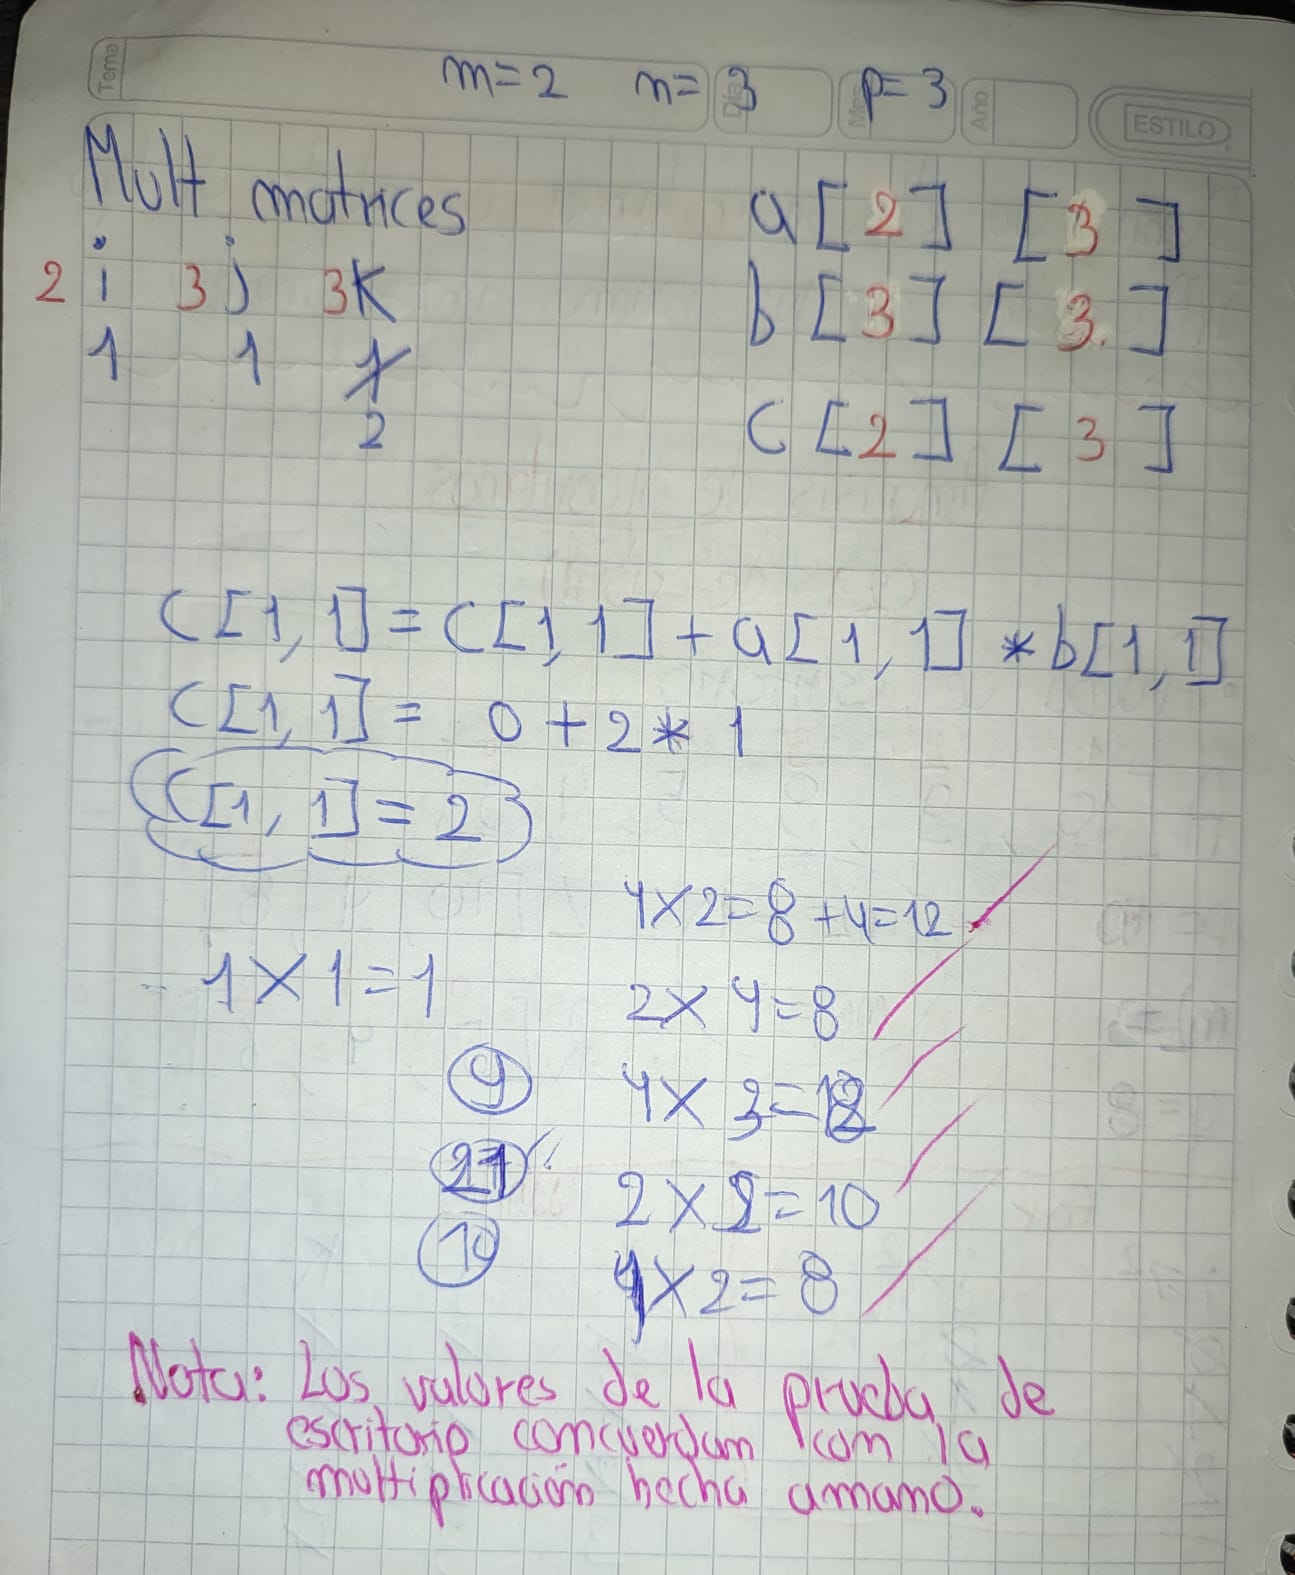 Tema
m=2 n=3 p=3
Día Mes Año ESTILO
Mult matrices
a[2] [3]
2 i 3 j 3 K
b[3] [3]
1 1 1
2
c[2] [3]
C[1,1]=C[1,1]+a[1,1]*b[1,1]
C[1,1]= 0+2*1
C[1,1]=2
4x2=8+4=12
1x1=1
2x4=8
9
4x3=12
21
2x2=10
10
4x2=8
Nota: Los valores de la prueba de
escritorio concuerdan con la
multiplicación hecha amano.